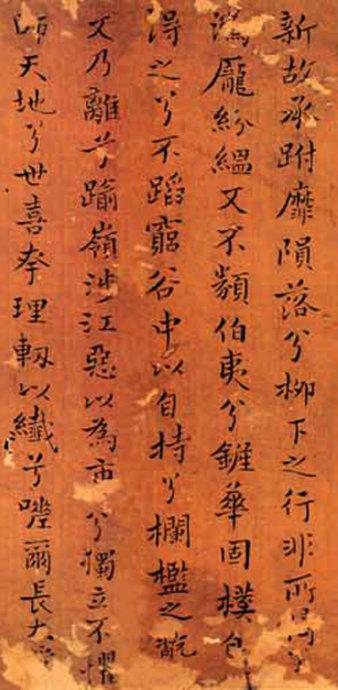 新故承跗靡隕落兮柳下之行非所同兮
龐紛縕又不類伯夷兮鏟華固樸
得之兮不蹈窮谷中以自持兮欄檻之
又乃離兮踰嶺涉江惡以為市兮獨立不懼
師天地兮世喜奉理軔以纖兮嗟爾長大